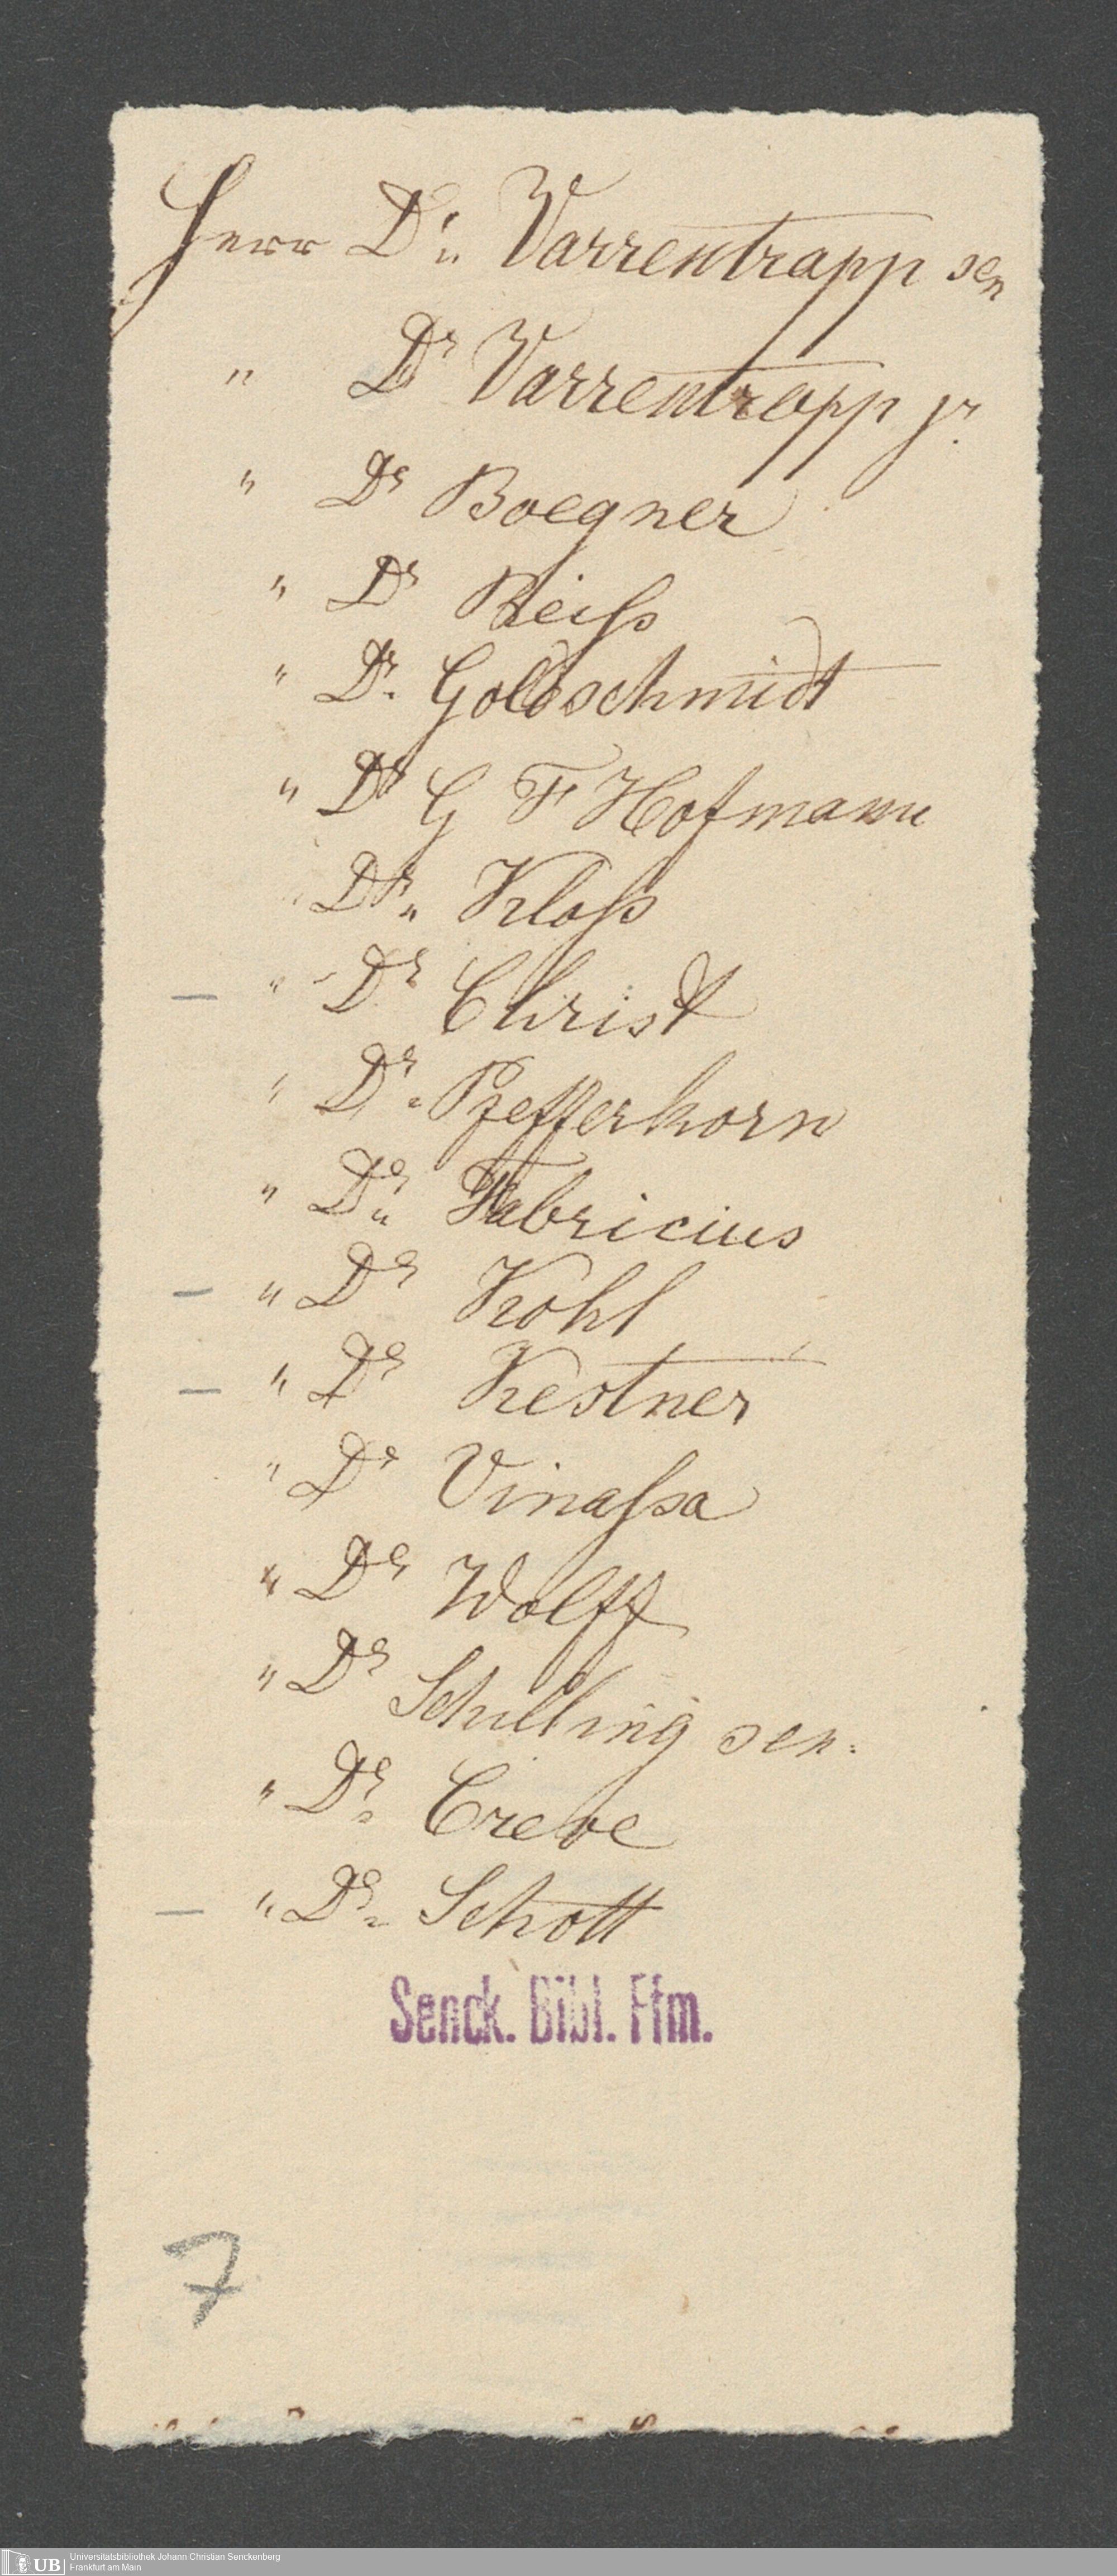 Herr Dr. Varrentrapp sen
" Dr Varrentrapp jr.
" Dr Boegner
" Dr Reiß
" Dr. Goldschmidt
" Dr G F Hofmann
" Dr. Kloß
— " Dr Christ
" Dr. Pfefferkorn
" Dr. Fabricius
— " Dr Kohl
— " Dr Kestner
" Dr Vinaßa
" Dr Wolff
" Dr Schilling sen.
" Dr. Creve
— " Dr. Schott
Senck. Bibl. Ffm.
7
UB Universitätsbibliothek Johann Christian Senckenberg
Frankfurt am Main